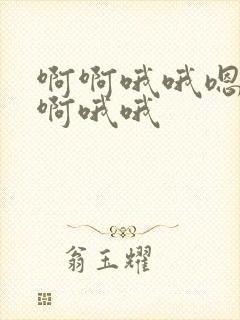 啊啊哦哦嗯
啊哦哦
翁玉耀